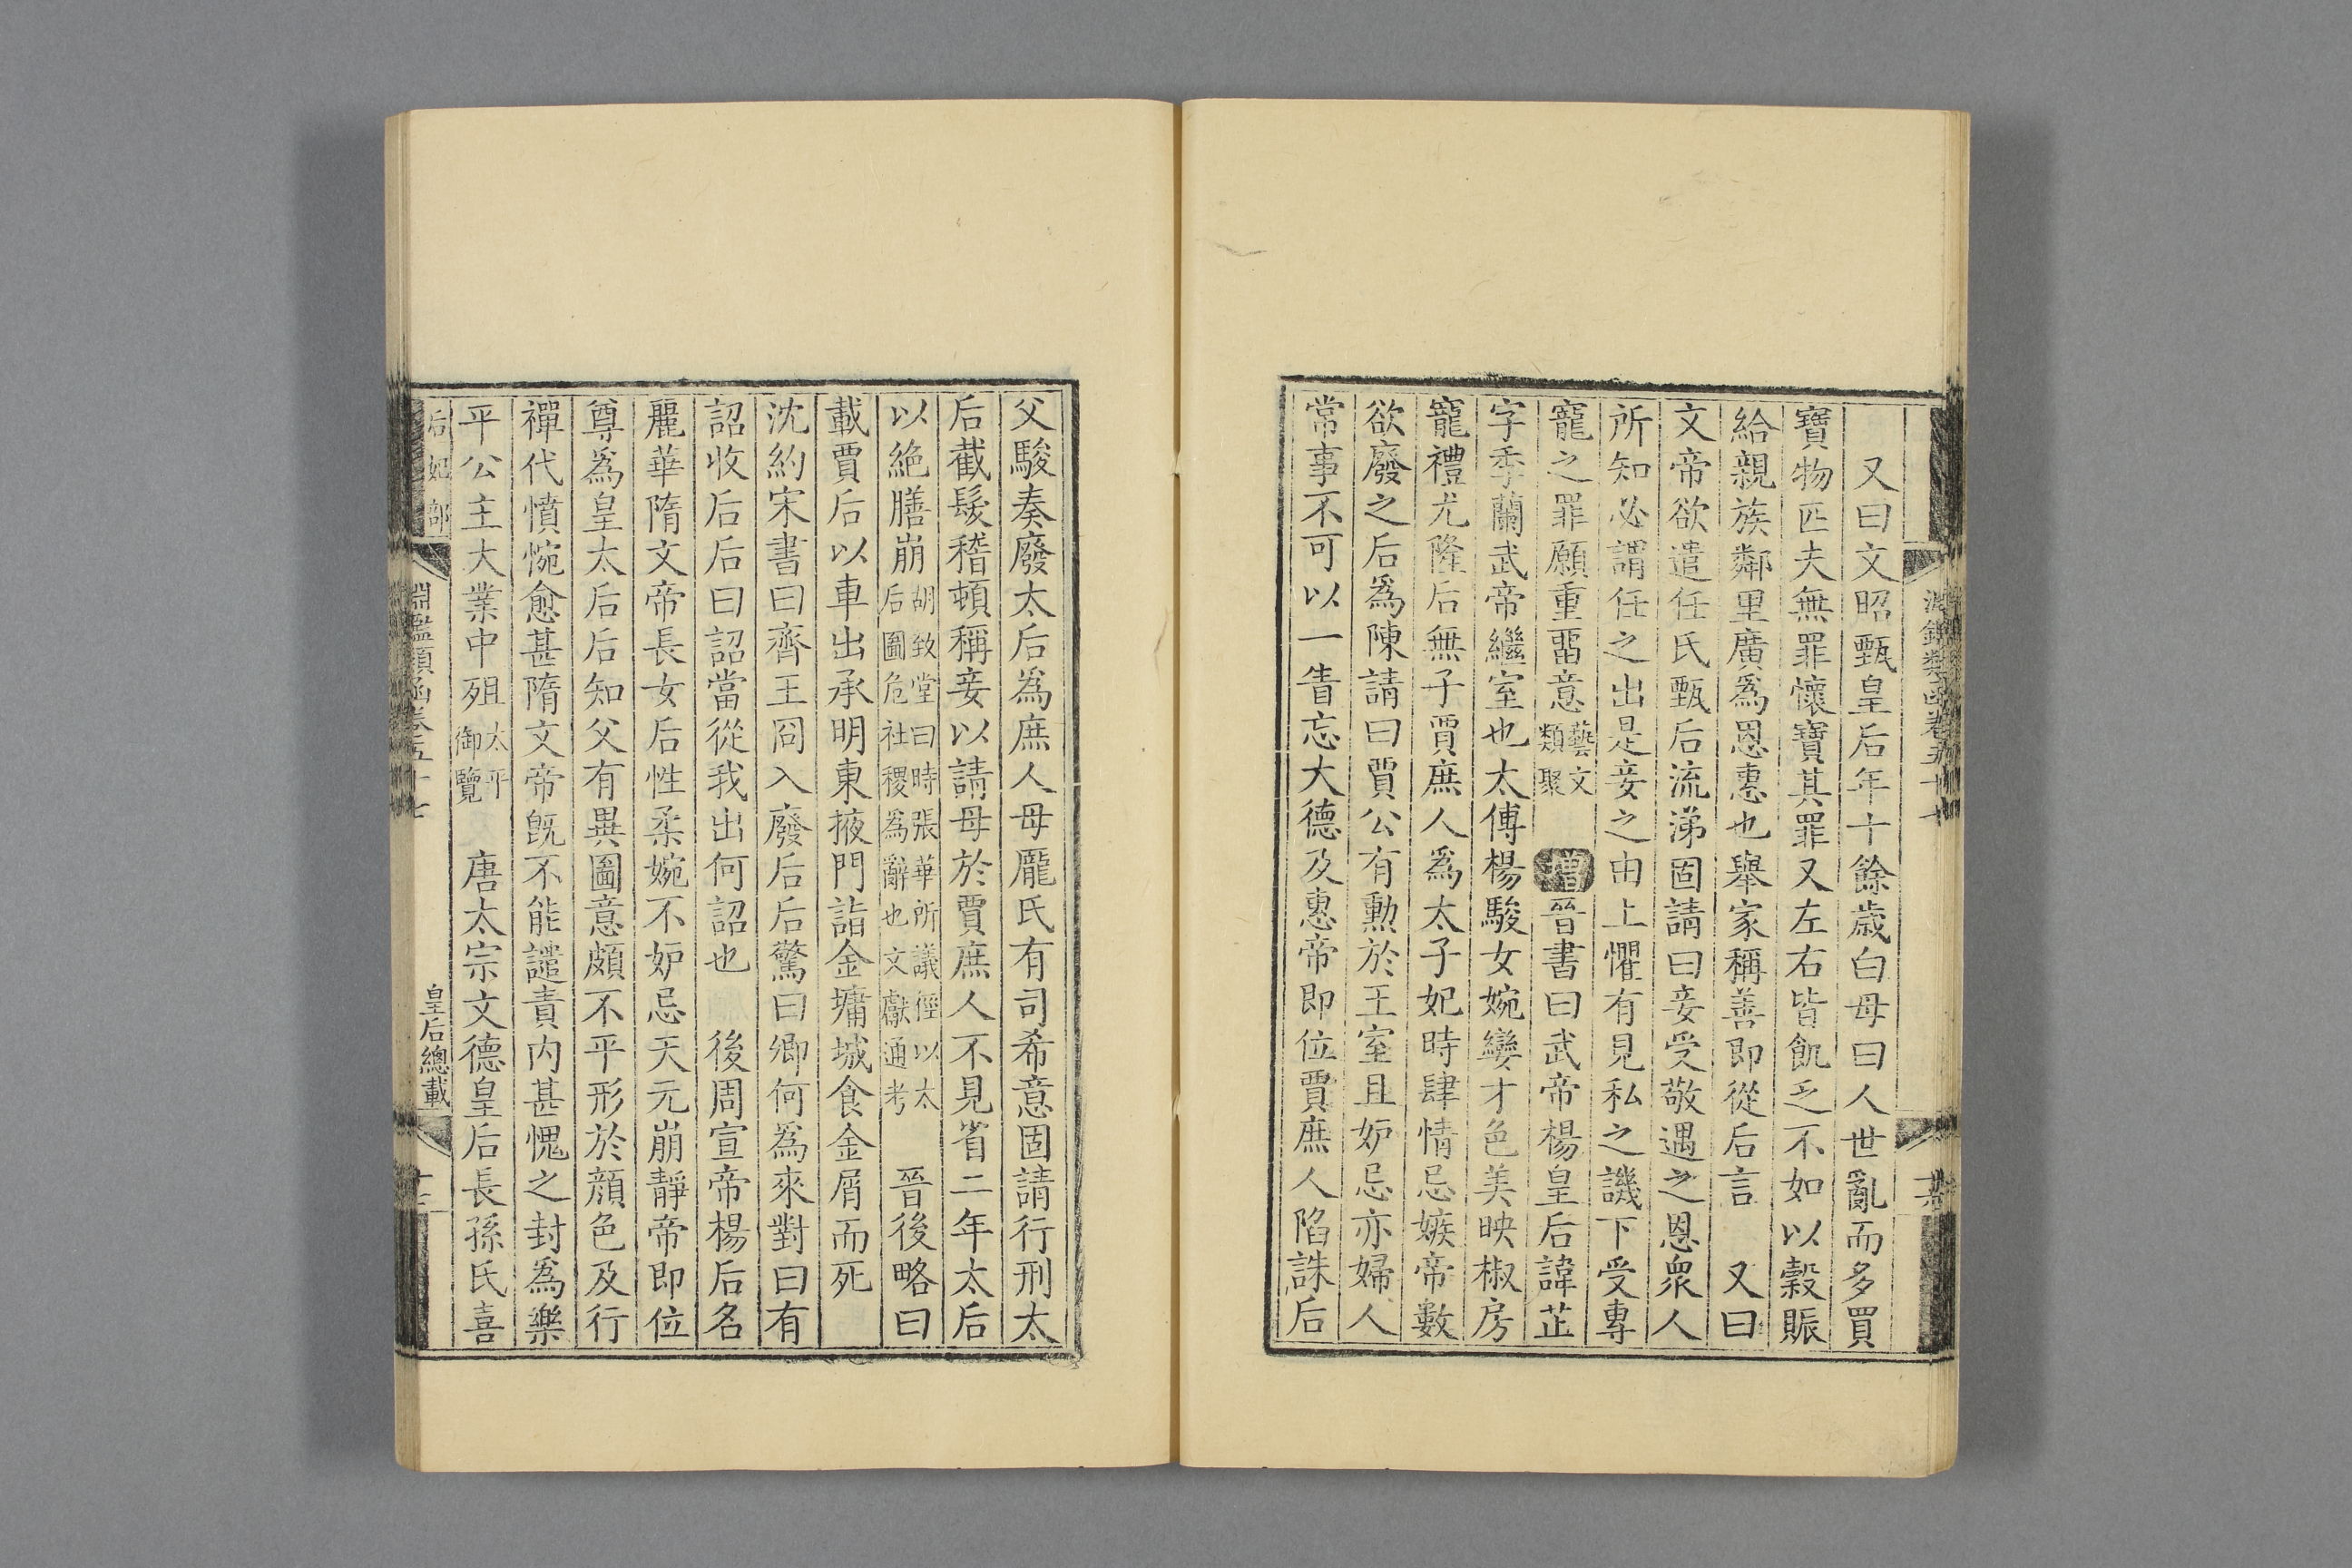 淵鑑類函卷五十七
又曰文昭甄皇后年十餘歲白母曰人世亂而多買
寶物匹夫無罪懷寶其罪又左右皆飢乏不如以穀賑
給親族鄰里廣爲恩惠也舉家稱善即從后言　又曰
文帝欲遣任氏甄后流涕固請曰妾受敬遇之恩衆人
所知必謂任之出是妾之由上懼有見私之譏下受專
寵之罪願重畱意藝文類聚　增晉書曰武帝楊皇后諱芷
字季蘭武帝繼室也太傅楊駿女婉孌才色美映椒房
寵禮尤隆后無子賈庶人爲太子妃時肆情忌嫉帝數
欲廢之后爲陳請曰賈公有勲於王室且妒忌亦婦人
常事不可以一眚忘大德及惠帝即位賈庶人陷誅后
父駿奏廢太后爲庶人母龐氏有司希意固請行刑太
后截髮稽頓稱妾以請母於賈庶人不見省二年太后
以絶膳崩胡致堂曰時張華所議徑以太后圖危社稷爲辭也文獻通考　晉後略曰
載賈后以車出承明東掖門詣金墉城食金屑而死
沈約宋書曰齊王冏入廢后后驚曰卿何爲來對曰有
詔收后后曰詔當從我出何詔也　後周宣帝楊后名
麗華隋文帝長女后性柔婉不妒忌天元崩靜帝即位
尊爲皇太后后知父有異圖意頗不平形於顔色及行
禪代憤惋愈甚隋文帝既不能譴責内甚愧之封爲樂
平公主大業中殂太平御覽　唐太宗文德皇后長孫氏喜
后妃部　淵鑑類函卷五十七　皇后總載